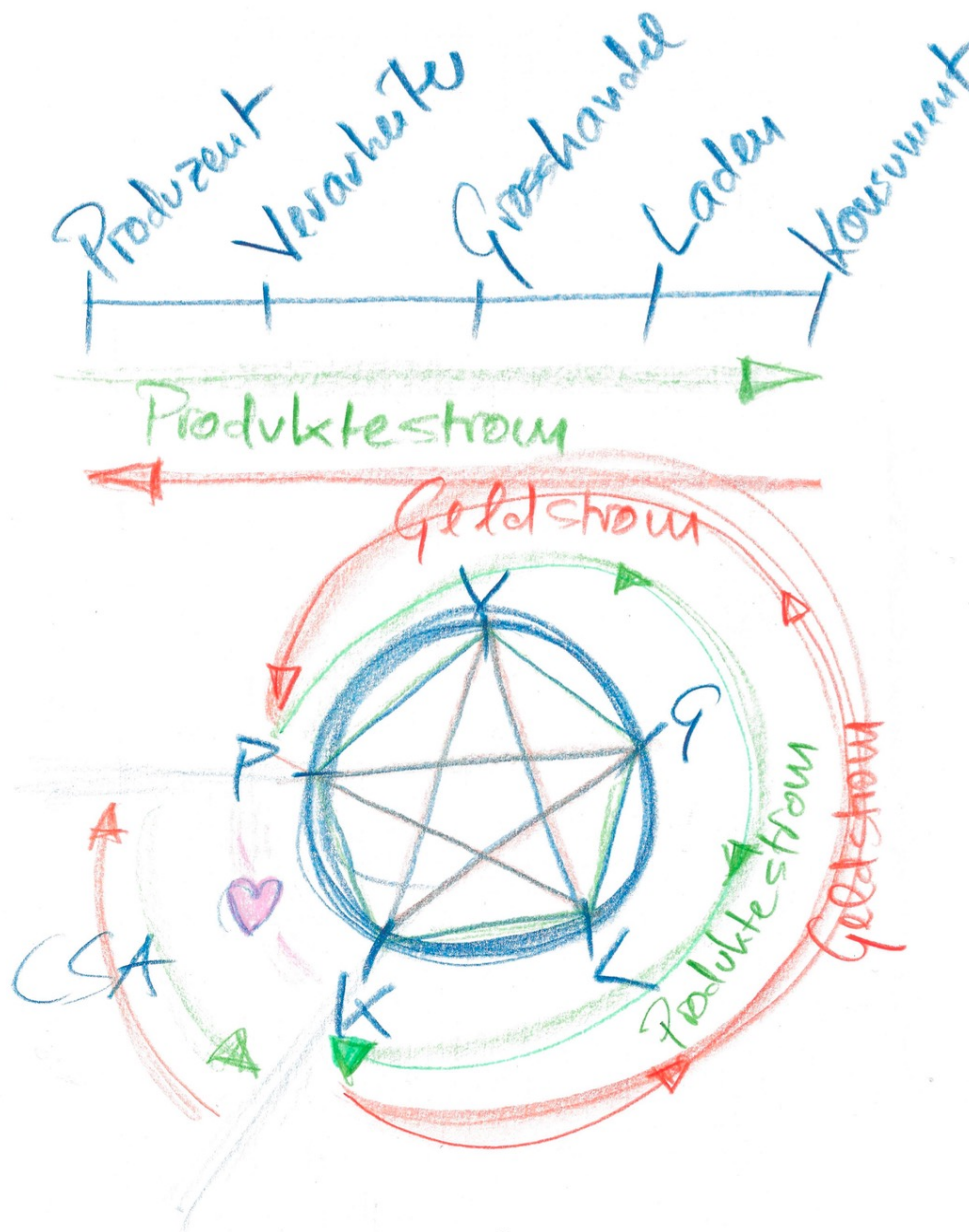 Produzent
Verarbeiter
Grosshandel
Laden
Konsument
Produktestrom
Geldstrom
V
G
P
CSA
K
L
Produktestrom
Geldstrom